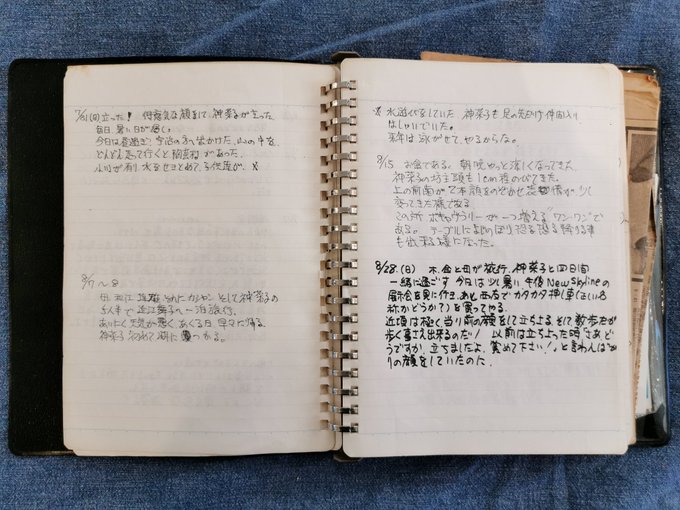 7/31(日)立った! 得意気な顔をして、神菜子が立った
毎日、暑い日が続く。
今日は昼過ぎ、宇治の方へ出かけた。山の中を
どんどん走って行くと 陶芸村があった。
小川が有り 水をせきとめて、子供達が、※
8/7 〜 8
5人車で 近江舞子へ 一泊旅行。
あいにく 天気が悪く、あくる日 早々に帰る。
神菜子 初めて 湖に つかる。
※ 水遊びをしていた。神菜子も 足の先だけ 仲間入り
はしゃいでいた。
来年は 泳がせて、やるからな。
8/15 お盆である。朝晩やっと涼しくなってきた。
神菜子の坊主頭も 1cm程のびてきた。
上の前歯が 2本 顔をのぞかせ 表情が 少し
変ってきた様である。
この所 ボキャヴラリーが 一つ増える"ワン・ワン"で
ある。テーブルによじのぼり 恐る恐る 降りる事
も出来る様になった。
8/28.(日) 母が旅行、神菜子と四日間
一緒に過ごす 今日は 少し暑い 午後 New Skyline の
展示会を見に行き、あと西友で カタカタ押し車(正しい名
称かどうか?)を買ってやる。
近頃は極く当り前の顔をして立ちよる。そして数歩だが
歩く事さえ出来るのだ! 以前は立ちよった時 "さあ ど
うですか、立ちましたよ、賞めて下さい!"と言わんばか
りの顔をしていたのに.